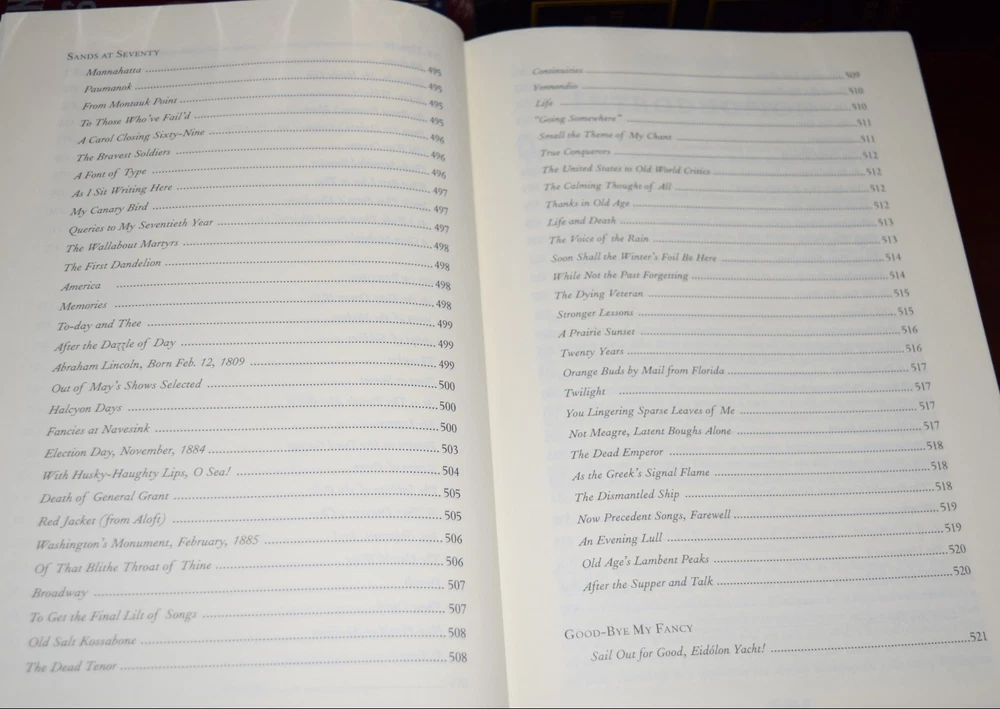 SANDS AT SEVENTY
Mannahatta 495
Paumanok 495
From Montauk Point 495
To Those Who've Fail'd 495
A Carol Closing Sixty-Nine 496
The Bravest Soldiers 496
A Font of Type 496
As I Sit Writing Here 497
My Canary Bird 497
Queries to My Seventieth Year 497
The Wallabout Martyrs 498
The First Dandelion 498
America 498
Memories 498
To-day and Thee 499
After the Dazzle of Day 499
Abraham Lincoln, Born Feb. 12, 1809 499
Out of May's Shows Selected 500
Halcyon Days 500
Fancies at Navesink 500
Election Day, November, 1884 503
With Husky-Haughty Lips, O Sea! 504
Death of General Grant 505
Red Jacket (from Aloft) 505
Washington's Monument, February, 1885 506
Of That Blithe Throat of Thine 506
Broadway 507
To Get the Final Lilt of Songs 507
Old Salt Kossabone 508
The Dead Tenor 508
Continuities 509
Yonnondio 510
Life 510
"Going Somewhere" 511
Small the Theme of My Chant 511
True Conquerors 512
The United States to Old World Critics 512
The Calming Thought of All 512
Thanks in Old Age 512
Life and Death 513
The Voice of the Rain 513
Soon Shall the Winter's Foil Be Here 514
While Not the Past Forgetting 514
The Dying Veteran 515
Stronger Lessons 515
A Prairie Sunset 516
Twenty Years 516
Orange Buds by Mail from Florida 517
Twilight 517
You Lingering Sparse Leaves of Me 517
Not Meagre, Latent Boughs Alone 517
The Dead Emperor 518
As the Greek's Signal Flame 518
The Dismantled Ship 518
Now Precedent Songs, Farewell 519
An Evening Lull 519
Old Age's Lambent Peaks 520
After the Supper and Talk 520
GOOD-BYE MY FANCY
Sail Out for Good, Eidólon Yacht! 521